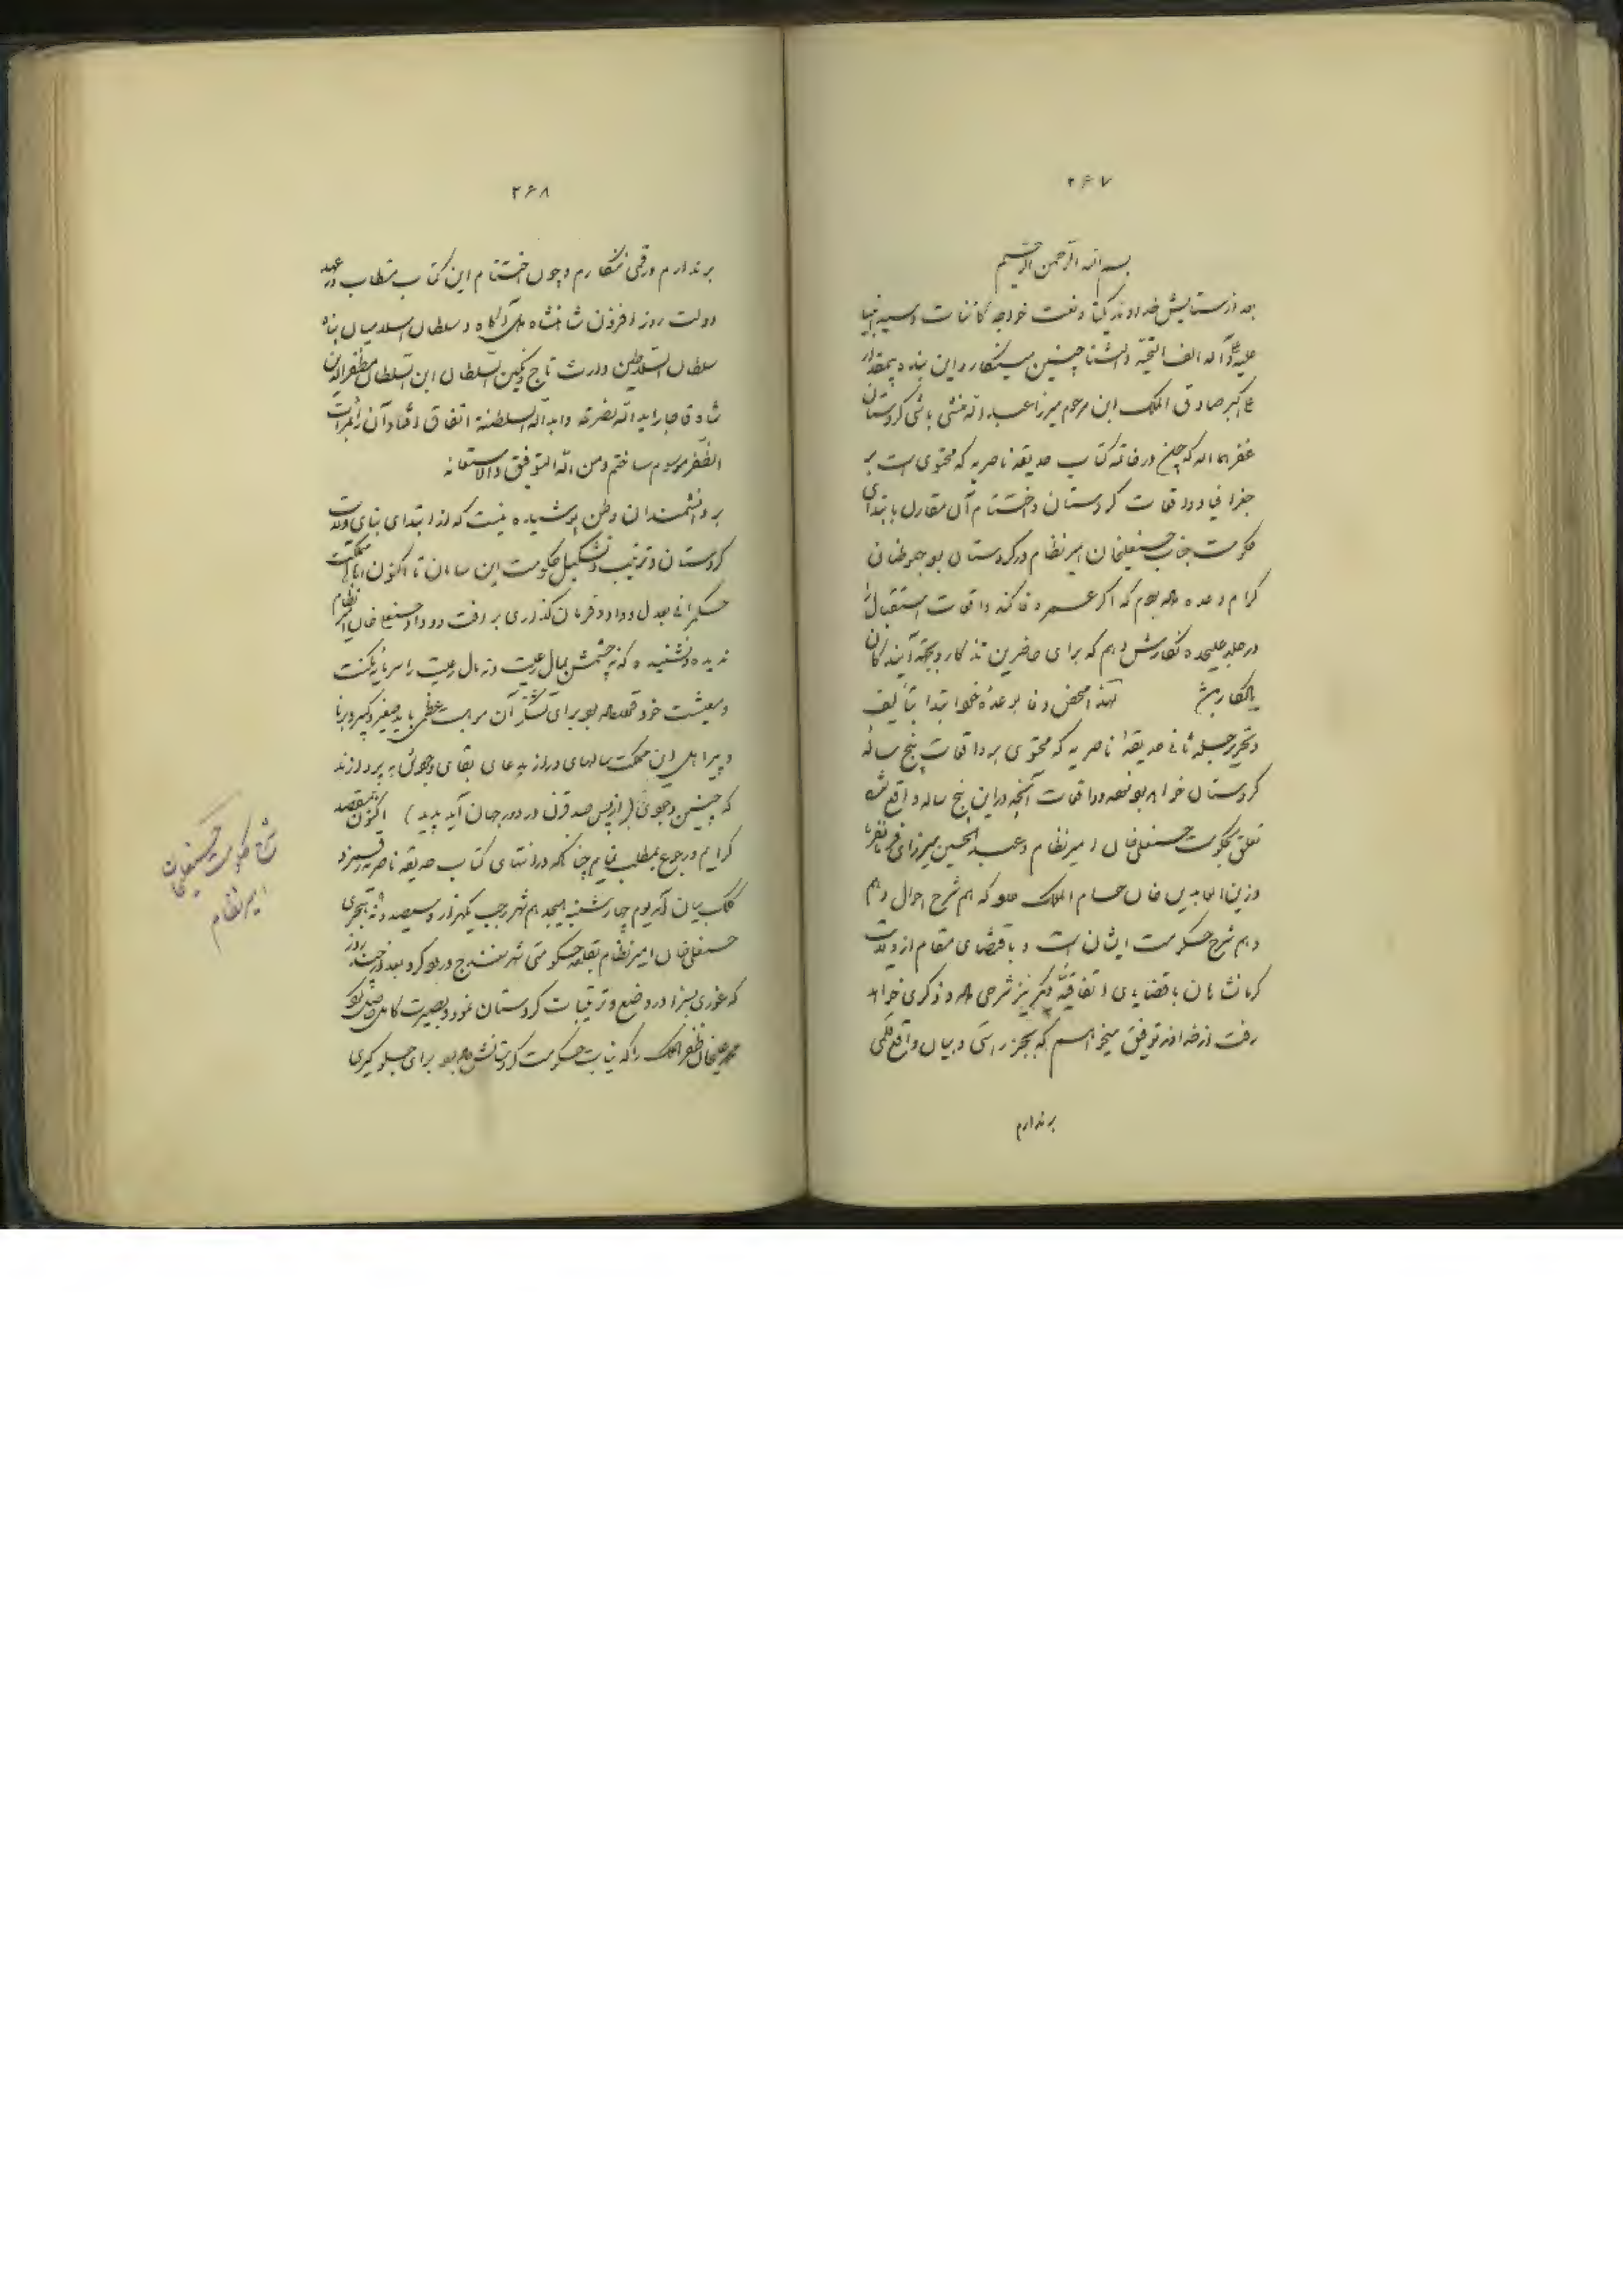 ۲۶۷
بسم الله الرحمن الرحیم
بعد از ستایش خداوند یکتا و نعت خواجه کائنات و سید انبیا
علیه و آله الف التحیة و الثنا چنین مینگارد این بنده بیمقدار
علی اکبر صادق الملک ابن مرحوم میرزا عبدالله منشی باشی کردستان
غفرهما الله که چون در خاتمه کتاب حدیقه ناصریه که محتوی است بر
جغرافیا و واقعات کردستان و اختتام آن مقارن بابتدای
حکومت جناب حسنعلیخان امیر نظام در کردستان بود بهموطنان
کرام وعده داده بودم که اگر عمر وفا کند واقعات استقبال را
در جلد علیحده نگارش دهم که برای حاضرین تذکار و بجهة آیندگان
یادگار باشد لهذا محض وفا بوعدهٔ خود ابتدا بتألیف
و تحریر جلد ثانی حدیقهٔ ناصریه که محتوی بر واقعات پنج ساله
کردستان خواهد بود نمود و واقعات آنچه در این پنج ساله واقع شده
تعلق بحکومت حسنعلی خان امیر نظام و عبدالحسین میرزای فرمانفرما
و زین العابدین خان حسام الملک دارد که هم شرح احوال و هم
و هم شرح حکومت ایشان است و باقتضای مقام از ولایت
کرمانشاهان با قضایای اتفاقیّه دیگر نیز شرحی داده و ذکری خواهد
رفت از خداوند توفیق میخواهم که بجز راستی و بیان واقع قلمی
برندارم
۲۶۸
برندارم و رقمی ننگارم و چون اختتام این کتاب مستطاب در عهد
دولت روز افزون شاهنشاه دل آگاه و سلطان اسلامیان پناه
سلطان السلاطین وارث تاج و نگین السلطان ابن السلطان مظفرالدین
شاه قاجار ایدالله نصرته و ابدالله سلطنته اتفاق افتاد آن را بمرآت
الظفر موسوم ساختم و من الله التوفیق و الاستعانه
بر دانشمندان وطن پوشیده نیست که از ابتدای بنای ولایت
کردستان و ترتیب و تشکیل حکومت این سامان تا اکنون اهالی مملکت
حکمرانی بعدل و داد و فرمان گذاری بر رأفت و وداد حسنعلی خان امیر نظام
ندیده و نشنیده که نه چشمش بمال رعیت و نه مال رعیت را سرمایه مکنت
و معیشت خود قرار داده بود برای تشکر آن مرحمت عظمی باید صغیر و کبیر و برنا
و پیر اهل این مملکت سالهای دراز بدعای بقای وجودش بپردازند
که چنین وجودی (از پس صد قرن در دور جهان آید پدید) اکنون بمقصد
گرایم و رجوع بمطلب نمایم چنانکه در انتهای کتاب حدیقه ناصریه رقمزد
کلک بیان آمد یوم چهارشنبه هیجدهم شهر رجب یکهزار و سیصد و نه هجری
حسنعلی خان امیر نظام بقلعه حکومتی شهر سنندج ورود کرد بعد از چند روز
که غوری بسزا در وضع و ترتیبات کردستان نمود و بصیرت کامل حاصل کرد
محمد علیخان ظفر الملک را که نیابت حکومت کردستانش داده بود برای جلوگیری
شرح حکومت حسنعلیخان
امیر نظام